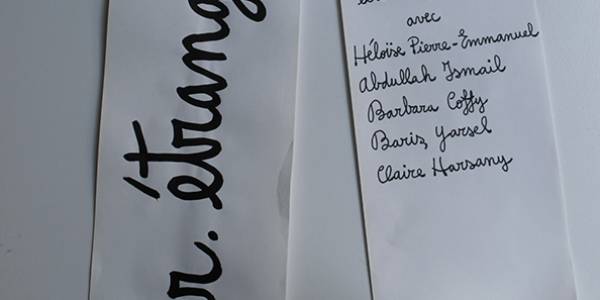 r. étrang
avec
Héloïse Pierre-Emmanuel
Abdullah Ismail
Barbara Coffy
Bariz Yarsel
Claire Harsany